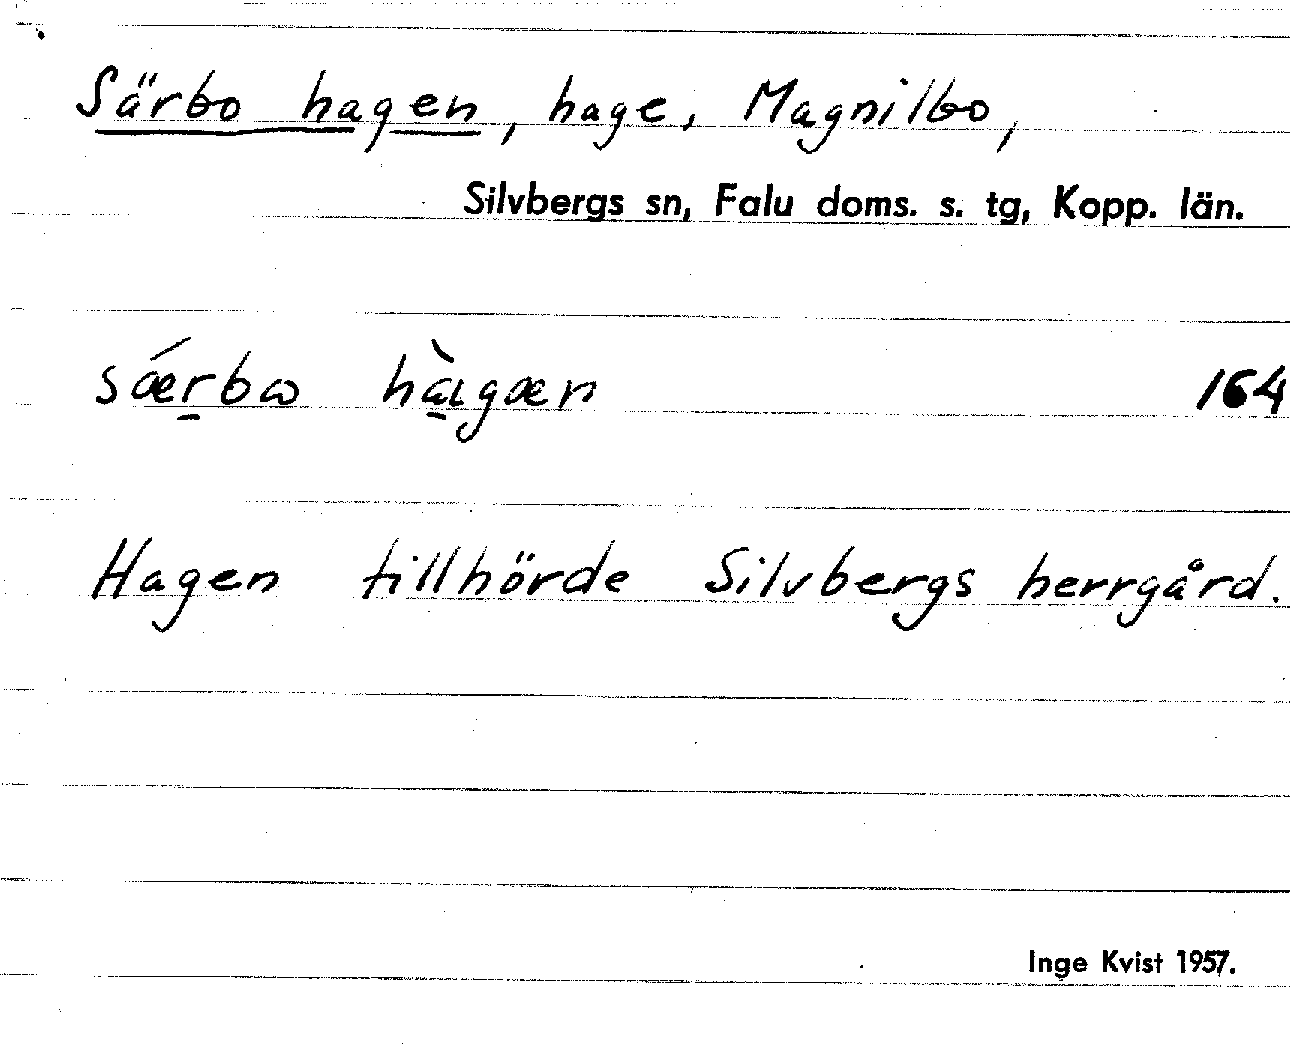 Särbo hagen, hage, Magnilbo,
Silvbergs sn, Falu doms. s. tg, Kopp. län.
sǽr̠bω hὰ̠gæn 164
Hagen tillhörde Silvbergs herrgård.
Inge Kvist 1957.